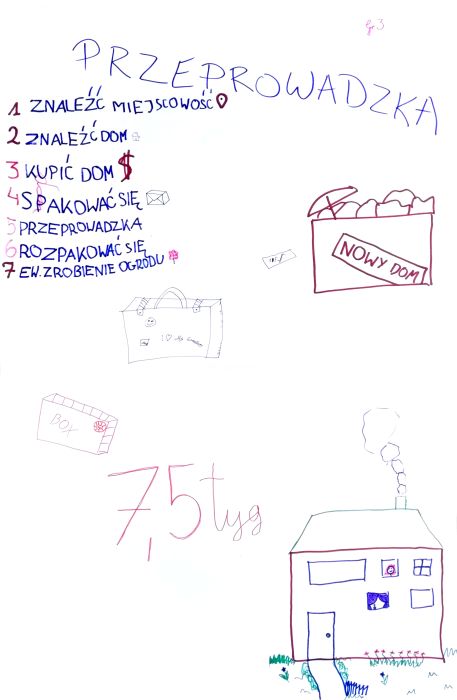 gr 3
PRZEPROWADZKA
1 ZNALEŹĆ MIEJSCOWOŚĆ
2 ZNALEŹĆ DOM
3 KUPIĆ DOM $
4 SPAKOWAĆ SIĘ
5 PRZEPROWADZKA
6 ROZPAKOWAĆ SIĘ
7 EW. ZROBIENIE OGRODU
NOWY DOM
I ♡
BOX
7,5 tyg